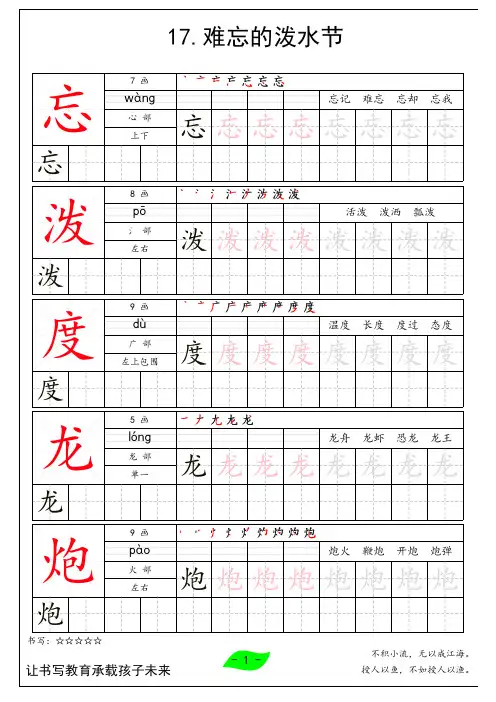 17.难忘的泼水节
忘 7 画
wàng 忘记 难忘 忘却 忘我
心 部
上下
忘 忘 忘 忘 忘 忘 忘 忘
忘
泼 8 画
pō 活泼 泼洒 瓢泼
氵 部
左右
泼 泼 泼 泼 泼 泼 泼 泼
泼
度 9 画
dù 温度 长度 度过 态度
广 部
左上包围
度 度 度 度 度 度 度 度
度
龙 5 画
lóng 龙舟 龙虾 恐龙 龙王
龙 部
单一
龙 龙 龙 龙 龙 龙 龙 龙
龙
炮 9 画
pào 炮火 鞭炮 开炮 炮弹
火 部
左右
炮 炮 炮 炮 炮 炮 炮 炮
炮
书写：☆☆☆☆☆
让书写教育承载孩子未来
- 1 -
不积小流，无以成江海。
授人以鱼，不如授人以渔。